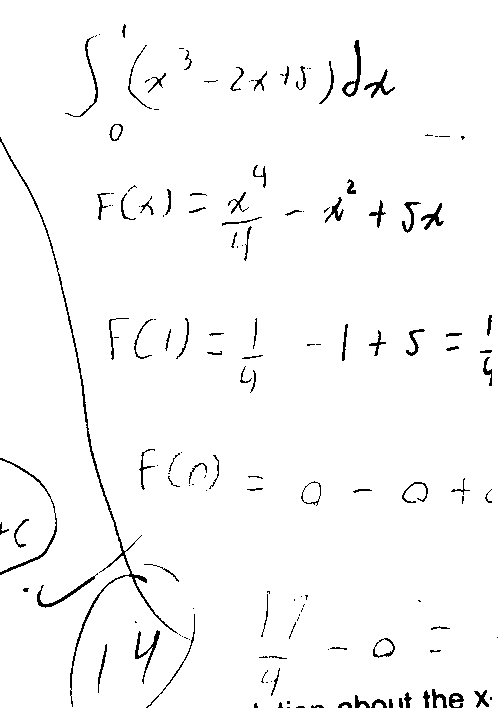 ∫₀¹ (x³ - 2x + 5) dx
F(x) = x⁴/4 - x² + 5x
F(1) = 1/4 - 1 + 5 = 1/4
F(0) = 0 - 0 +
+C
14
17/4 - 0 =
about the x-